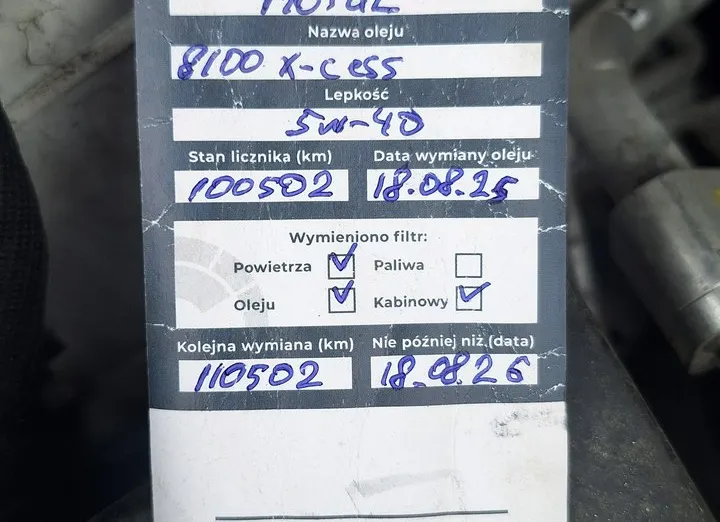 MOTUL
Nazwa oleju
8100 X-cess
Lepkość
5w-40
Stan licznika (km) Data wymiany oleju
100502 18.08.25
Wymieniono filtr:
Powietrza Paliwa
Oleju Kabinowy
Kolejna wymiana (km) Nie później niż (data)
110502 18.08.26